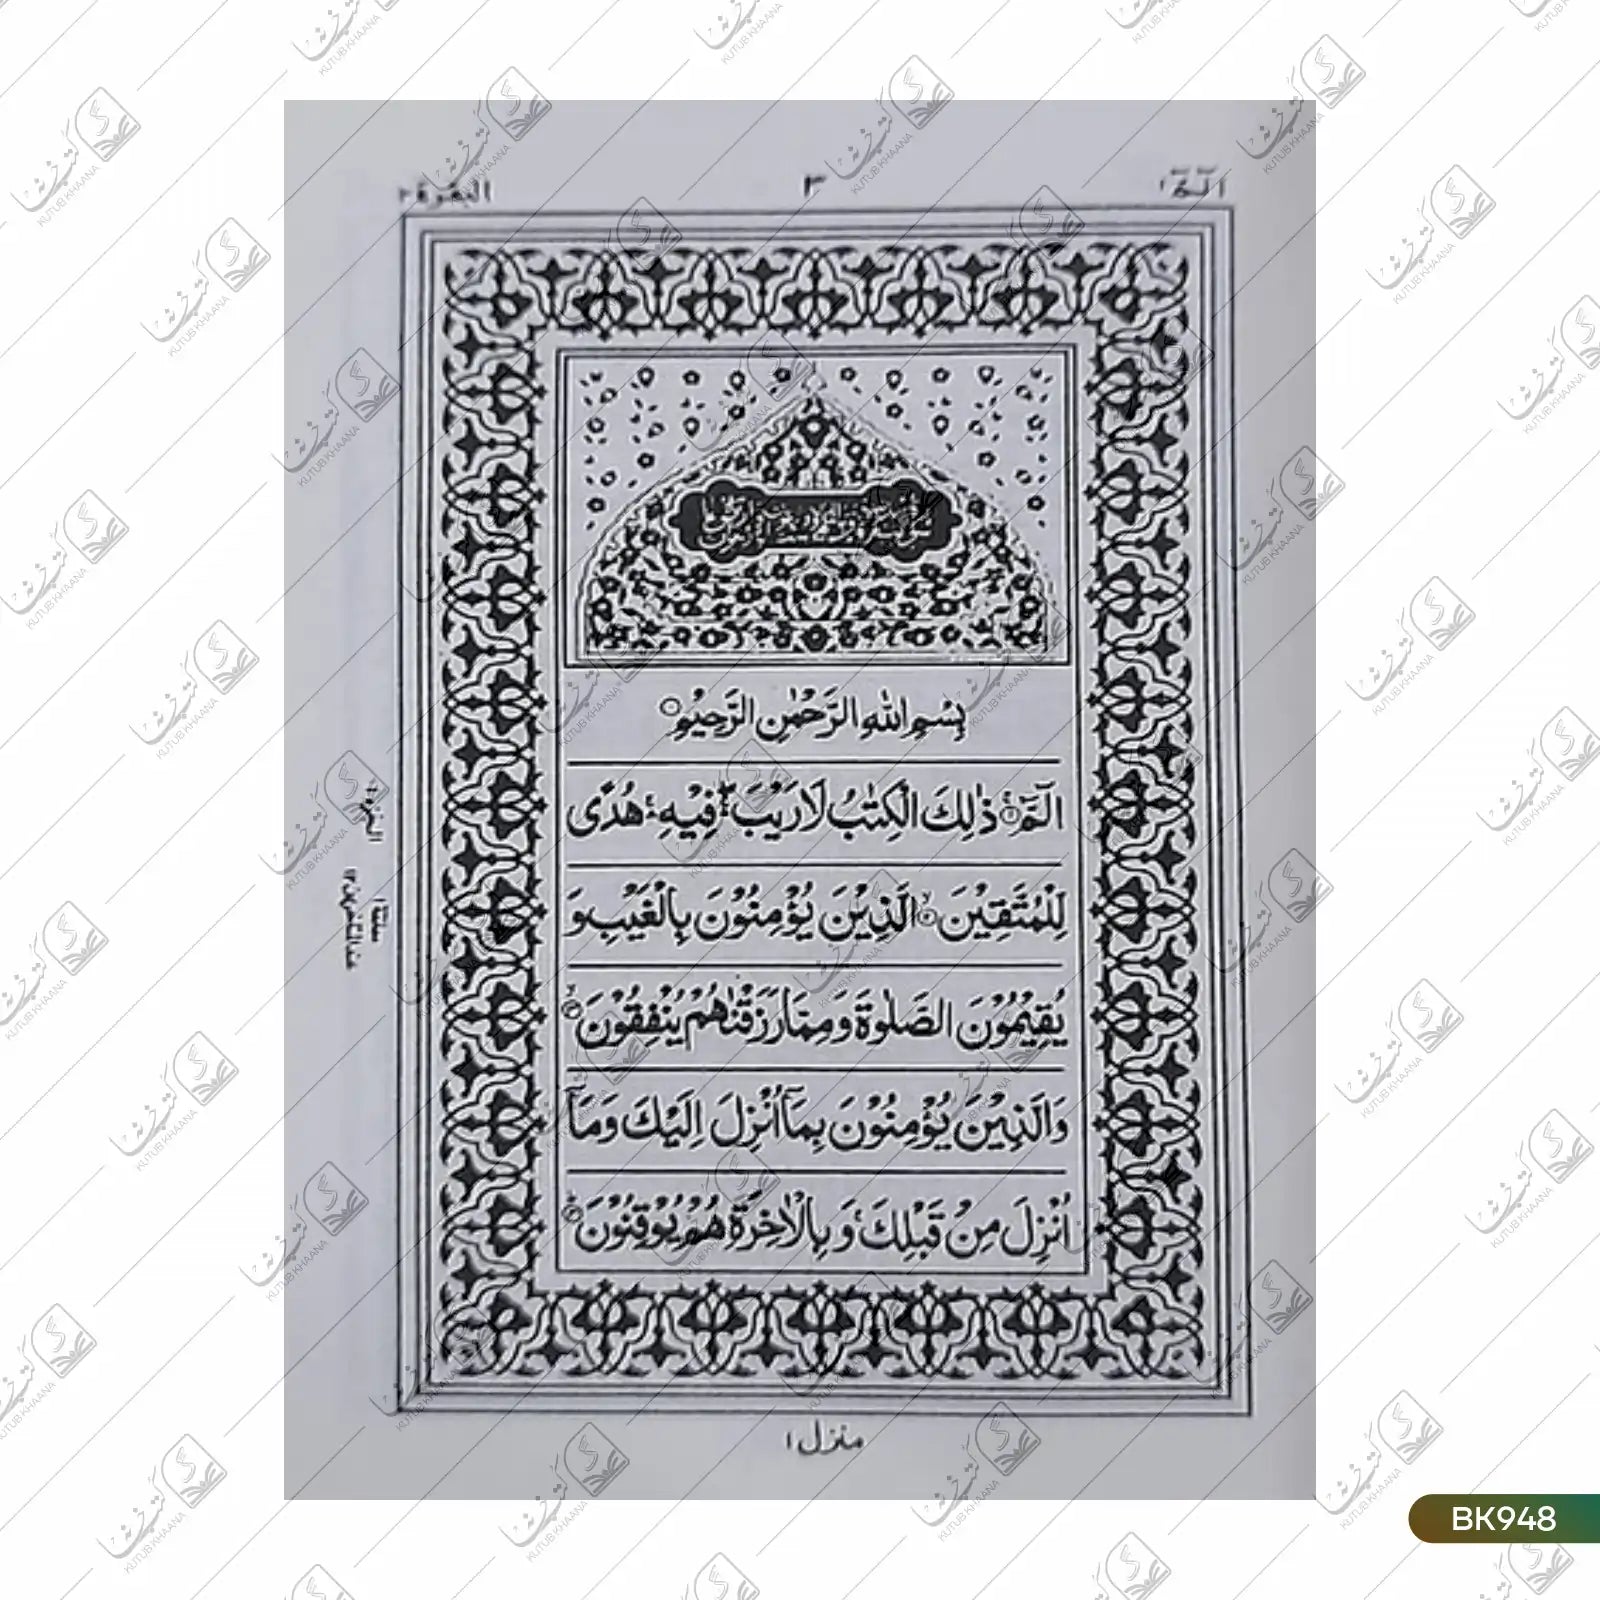 الٓمّٓ ١
٣
البقرة ٢
بِسْمِ اللهِ الرَّحْمٰنِ الرَّحِيْمِ ○
الٓمّٓ ۚ﴿۱﴾ ذٰلِكَ الْكِتٰبُ لَا رَيْبَ ۛ ۖ فِيْهِ ۛ ۚ هُدًى
لِّلْمُتَّقِيْنَ ۙ﴿۲﴾ الَّذِيْنَ يُؤْمِنُوْنَ بِالْغَيْبِ وَ
يُقِيْمُوْنَ الصَّلٰوةَ وَمِمَّا رَزَقْنٰهُمْ يُنْفِقُوْنَ ۙ﴿۳﴾
وَالَّذِيْنَ يُؤْمِنُوْنَ بِمَاۤ اُنْزِلَ اِلَيْكَ وَمَاۤ
اُنْزِلَ مِنْ قَبْلِكَ ۚ وَبِالْاٰخِرَةِ هُمْ يُوْقِنُوْنَ ؕ﴿۴﴾
منزل ١
BK948
كتب خانہ
KUTUB KHAANA